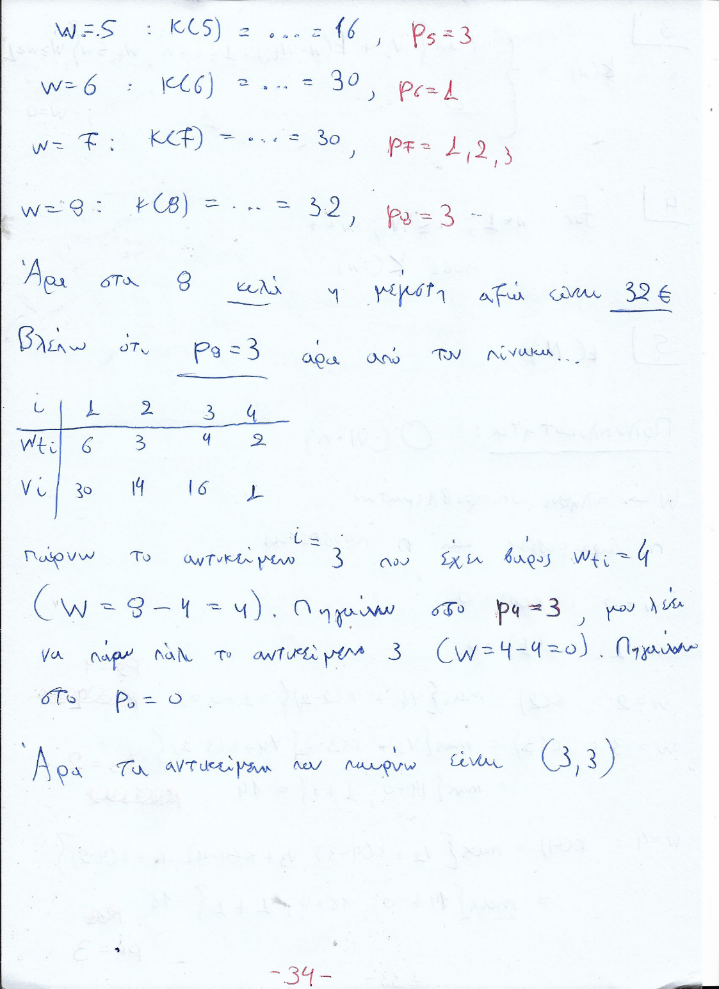 w=5 : K(5) = .... = 16, p5=3
w=6 : K(6) = .... = 30, p6=1
w=7: K(7) = ... = 30, p7=1,2,3
w=8: K(8) = ... = 32, p8=3
Άρα στα 8 κελά η μέγιστη αξία είναι 32€
Βλέπω ότι p8=3 άρα από τον πίνακα...
i 1 2 3 4
wti 6 3 4 2
vi 30 14 16 1
παίρνω το αντικείμενο i=3 που έχει βάρος wti=4
(W=8-4=4). Πηγαίνω στο p4=3, μου λέει
να πάρω πάλι το αντικείμενο 3 (W=4-4=0). Πηγαίνω
στο p0=0
Άρα τα αντικείμενα που παίρνω είναι (3,3)
-34-